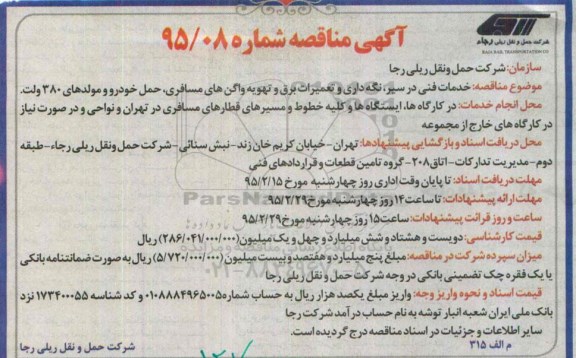 شرکت حمل و نقل ریلی رجاء
RAJA RAIL TRANSPORTATION CO
آگهی مناقصه شماره ۹۵/۰۸
سازمان: شرکت حمل ونقل ریلی رجا
موضوع مناقصه: خدمات فنی در سیر، نگه داری و تعمیرات برق و تهویه واگن های مسافری، حمل خودرو و مولدهای ۳۸۰ ولت.
محل انجام خدمات: در کارگاه ها، ایستگاه ها و کلیه خطوط و مسیرهای قطارهای مسافری در تهران و نواحی و در صورت نیاز
در کارگاه های خارج از مجموعه
محل دریافت اسناد و بازگشایی پیشنهادها: تهران - خیابان کریم خان زند - نبش سنائی - شرکت حمل ونقل ریلی رجاء - طبقه
دوم - مدیریت تدارکات - اتاق ۲۰۸ - گروه تامین قطعات و قراردادهای فنی
مهلت دریافت اسناد: تا پایان وقت اداری روز چهارشنبه مورخ ۹۵/۲/۱۵
مهلت ارائه پیشنهادات: تا ساعت ۱۴ روز چهارشنبه مورخ ۹۵/۲/۲۹
ساعت و روز قرائت پیشنهادات: ساعت ۱۵ روز چهارشنبه مورخ ۹۵/۲/۲۹
قیمت کارشناسی: دویست و هشتاد و شش میلیارد و چهل و یک میلیون (۲۸۶/۰۴۱/۰۰۰/۰۰۰) ریال
میزان سپرده شرکت در مناقصه: مبلغ پنج میلیارد و هفتصد و بیست میلیون (۵/۷۲۰/۰۰۰/۰۰۰) ریال به صورت ضمانتنامه بانکی
یا یک فقره چک تضمینی بانکی در وجه شرکت حمل و نقل ریلی رجا
قیمت اسناد و نحوه واریز وجه: واریز مبلغ یکصد هزار ریال به حساب شماره ۰۱۰۸۸۸۴۹۶۵۰۰۵ و کد شناسه ۱۷۳۴۰۰۵۵ نزد
بانک ملی ایران شعبه انبار توشه به نام حساب درآمد شرکت رجا
سایر اطلاعات و جزئیات در اسناد مناقصه درج گردیده است.
م الف ۳۱۵
شرکت حمل و نقل ریلی رجا